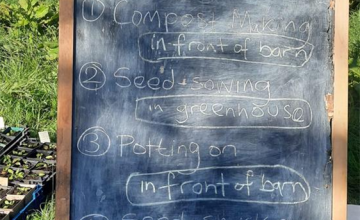 ① Compost Making
in front of barn
② Seed-sowing
in greenhouse
③ Potting on
in front of barn